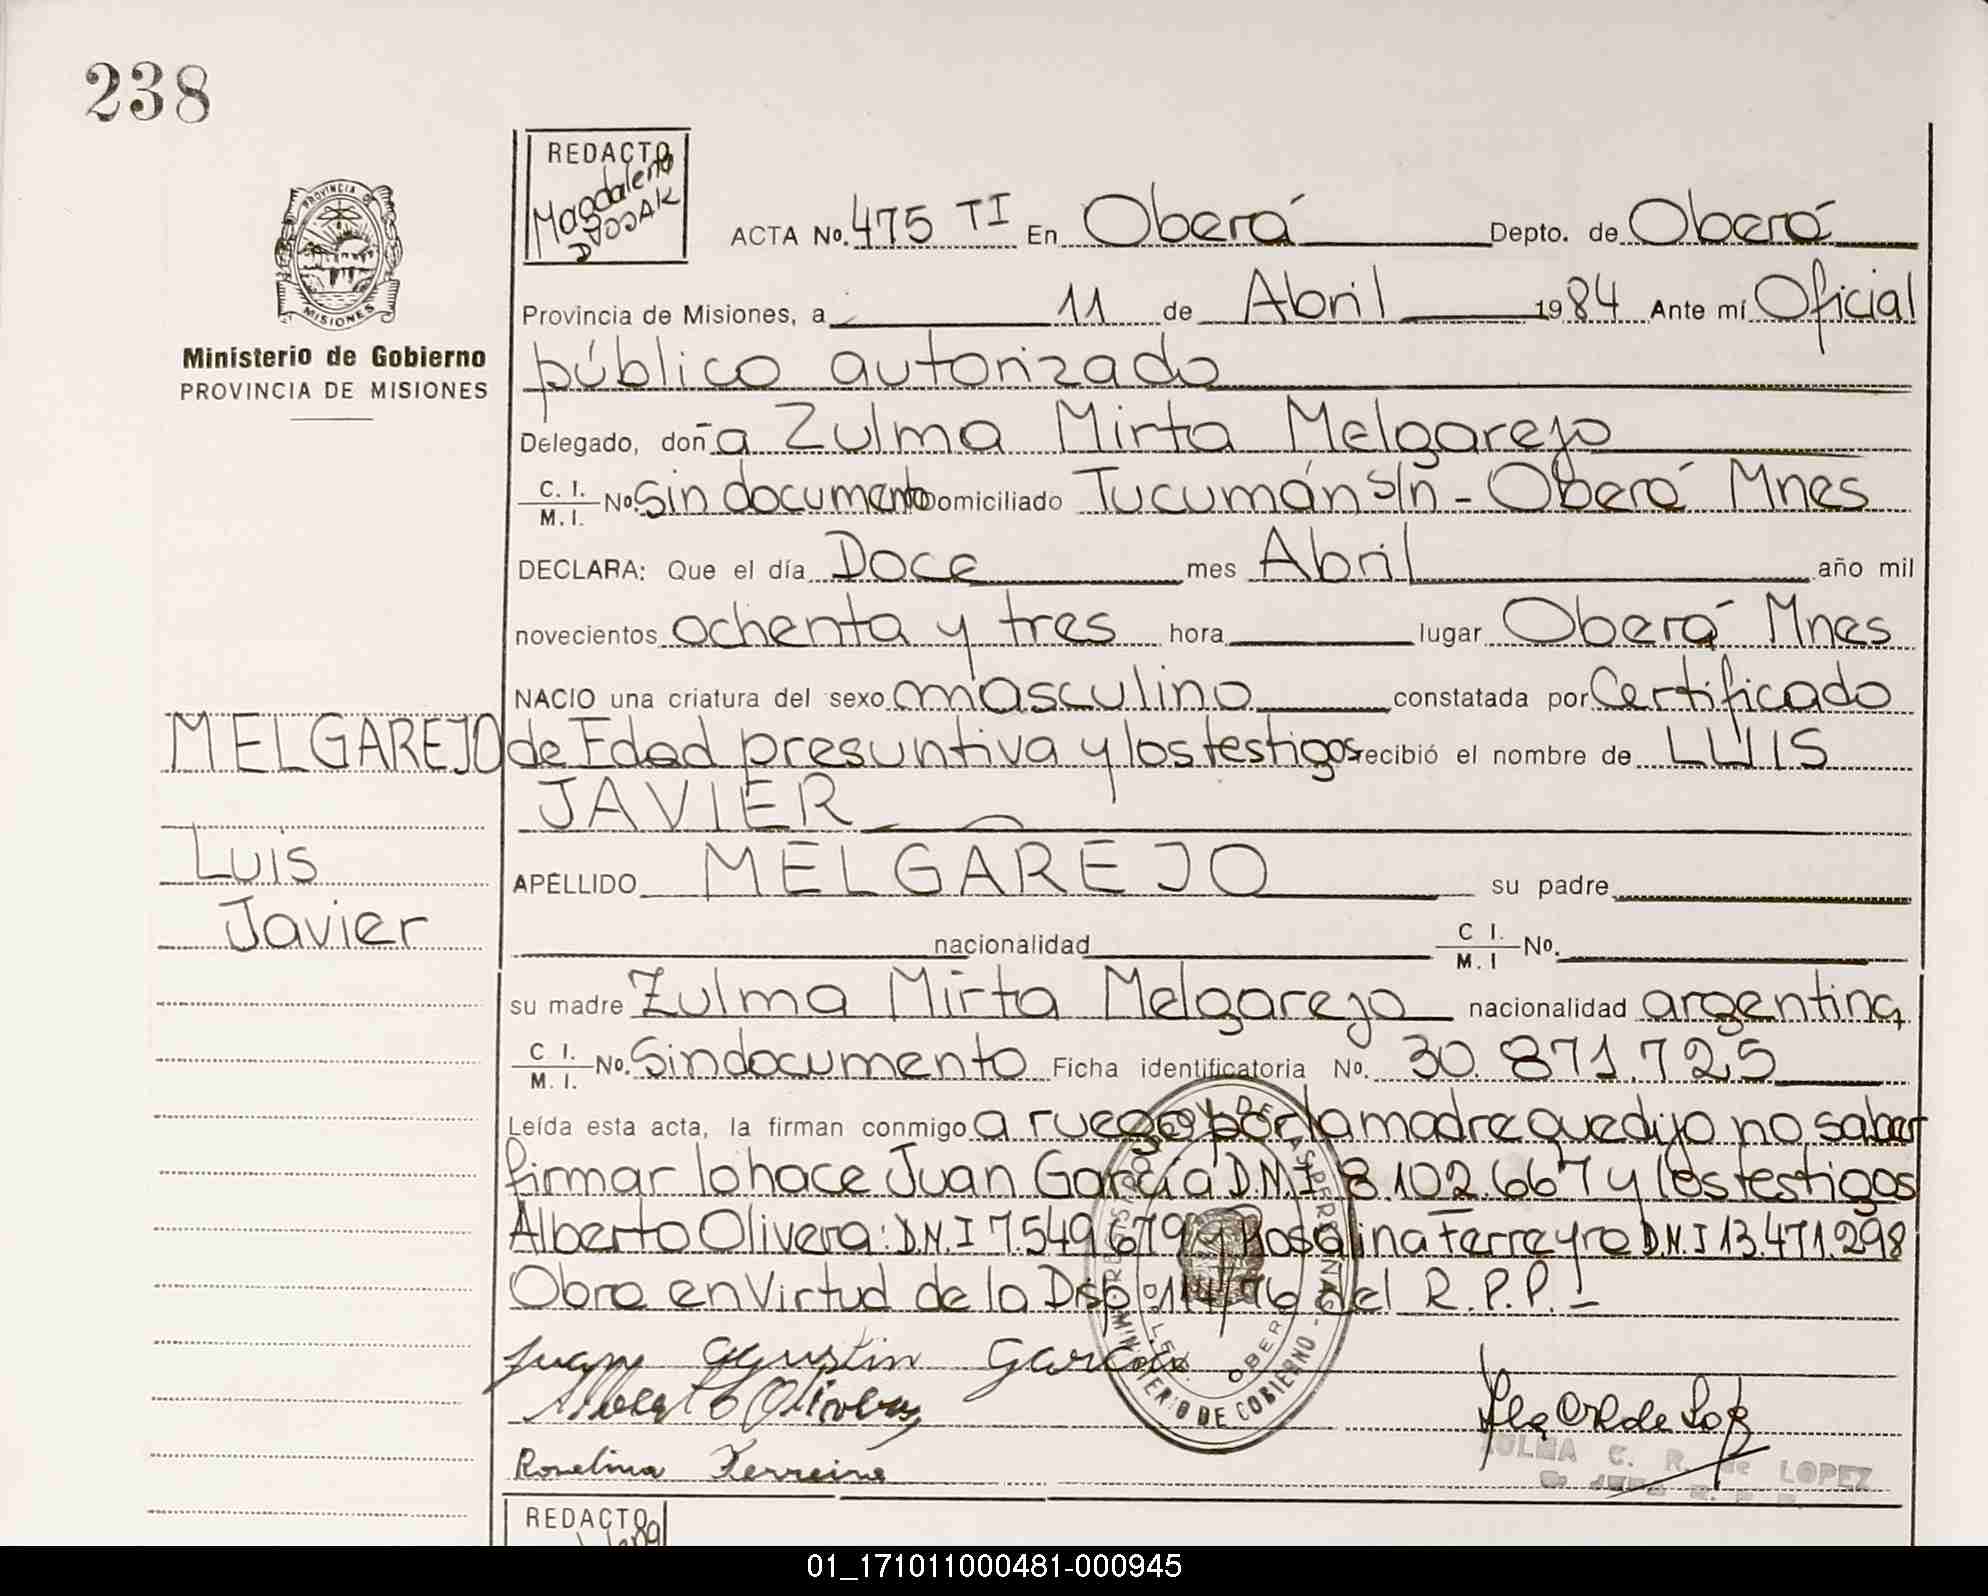 238
REDACTO
Magdalena
PROVINCIA DE
MISIONES
ACTA No. 475 TI En Oberá Depto. de Oberá
Provincia de Misiones, a 11 de Abril 1984 Ante mí Oficial
Ministerio de Gobierno
PROVINCIA DE MISIONES
público autorizado
Delegado, doña Zulma Mirta Melgarejo
C. I. / M. I. No. Sin documento Domiciliado Tucumán s/n - Oberá Mnes
DECLARA: Que el día Doce mes Abril año mil
novecientos ochenta y tres hora lugar Oberá Mnes
NACIO una criatura del sexo masculino constatada por Certificado
MELGAREJO
de Edad presuntiva y los testigos recibió el nombre de LUIS
JAVIER
Luis
APELLIDO MELGAREJO su padre
Javier
nacionalidad C I. / M. I No.
su madre Zulma Mirta Melgarejo nacionalidad argentina
C I. / M. I. No. Sin documento Ficha identificatoria No. 30.871.725
Leída esta acta, la firman conmigo a ruego por la madre que dijo no saber
firmar lo hace Juan García D.N.I 8.102.667 y los testigos
Alberto Olivera: D.N.I 7.549.679 Rosalina Ferreyro D.N.I 13.471.298
Obra en Virtud de la Disp. 114/76 del R.P.P.-
Juan Agustin Garcia
Alberto Olivera
Roselina Ferreira
ZULMA C. R. de LOPEZ
MINISTERIO DE GOBIERNO
OBERA
REDACTO
01_171011000481-000945